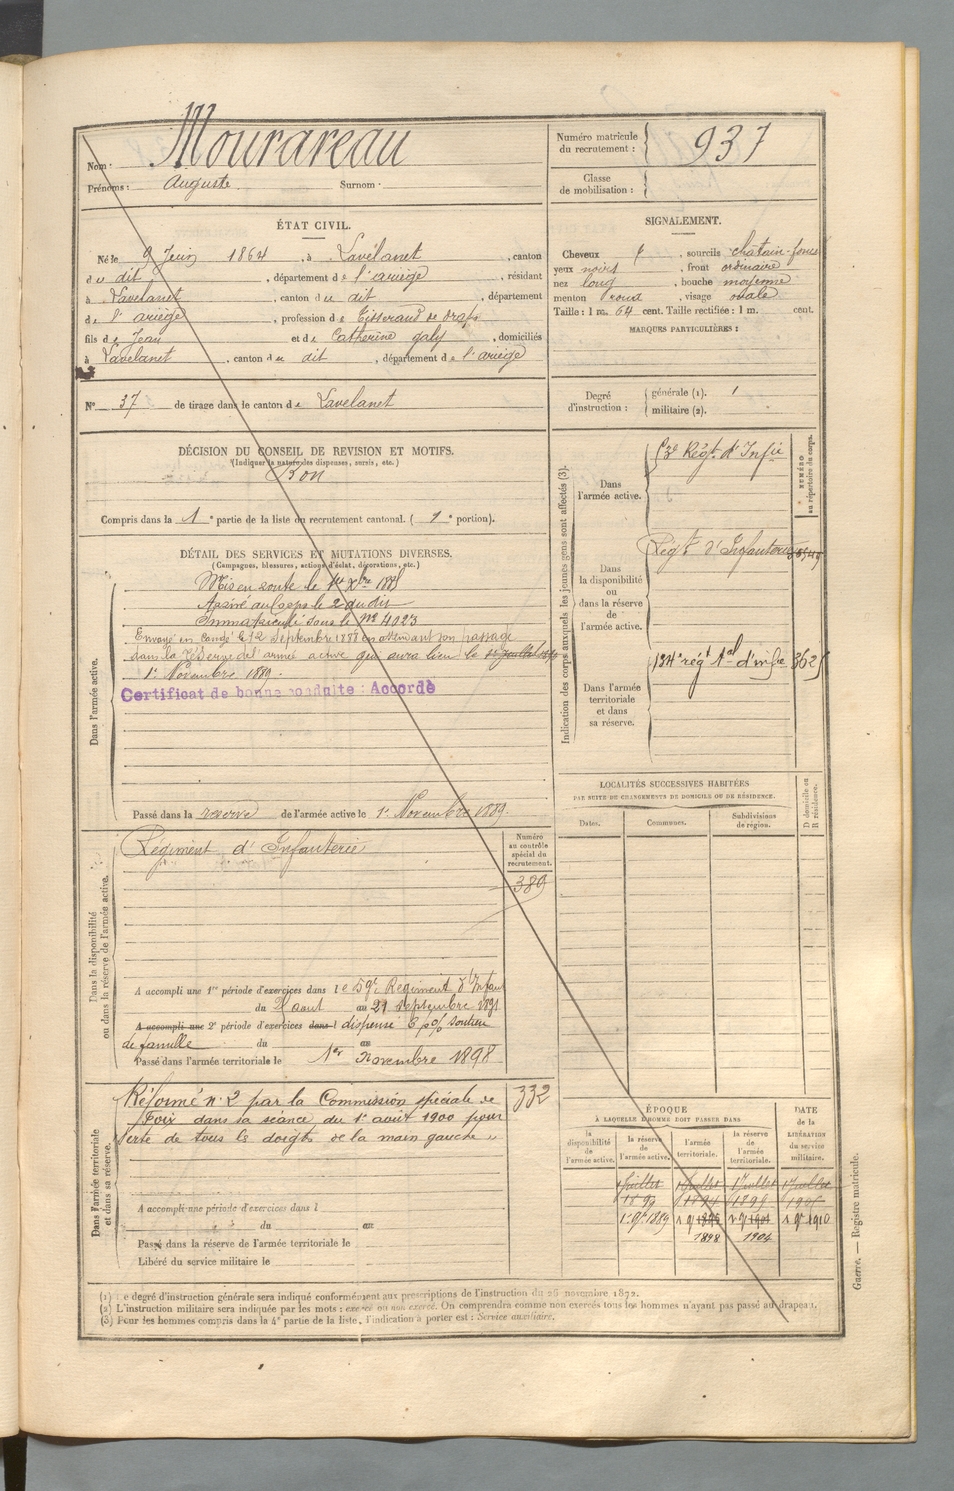 Nom : Mourareau
Prénoms : Auguste Surnom :
Numéro matricule du recrutement : 937
Classe de mobilisation :
ÉTAT CIVIL.
Né le 9 Juin 1864, à Lavelanet, canton
du dit, département de l'ariège, résidant
à Lavelanet, canton du dit, département
de l'ariège, profession de Tisserand de draps
fils de Jean et de Catherine galy, domiciliés
à Lavelanet, canton du dit, département de l'ariège
N° 37 de tirage dans le canton de Lavelanet
SIGNALEMENT.
Cheveux , sourcils chatain-foncé
yeux noirs, front ordinaire
nez long, bouche moyenne
menton rond, visage ovale
Taille : 1 m. 64 cent. Taille rectifiée : 1 m. cent.
MARQUES PARTICULIÈRES :
Degré d'instruction : générale (1). 1
militaire (2).
DÉCISION DU CONSEIL DE REVISION ET MOTIFS.
(Indiquer la nature des dispenses, sursis, etc.)
Bon
Compris dans la 1e partie de la liste du recrutement cantonal. (1e portion).
DÉTAIL DES SERVICES ET MUTATIONS DIVERSES.
(Campagnes, blessures, actions d'éclat, décorations, etc.)
Dans l'armée active.
Mis en route le 1er Xbre 1885
Arrivé au Corps le 2 du dit
Immatriculé sous le N° 4023
Envoyé en congé le 12 Septembre 1888 en attendant son passage
dans la réserve de l'armée active qui aura lieu le
1er Novembre 1889.
Certificat de bonne conduite : Accordé
Passé dans la reserve de l'armée active le 1er Novembre 1889.
Indication des corps auxquels les jeunes gens sont affectés (3).
NUMÉRO au répertoire du corps.
Dans l'armée active.
Régt d'Infie
Dans la disponibilité ou dans la réserve de l'armée active.
Régt d'Infanterie
Dans l'armée territoriale et dans sa réserve.
134e régt tal d'infie 3625
LOCALITÉS SUCCESSIVES HABITÉES
PAR SUITE DE CHANGEMENTS DE DOMICILE OU DE RÉSIDENCE.
Dates. Communes. Subdivisions de région. D domicile ou R résidence.
Dans la disponibilité ou dans la réserve de l'armée active.
Numéro au contrôle spécial du recrutement.
Régiment d'Infanterie
389
A accompli une 1re période d'exercices dans le 59e Régiment d'Infant
du aout au 21 septembre 1891
A accompli une 2e période d'exercices dans l dispensé 6 p% soutien
de famille du au
Passé dans l'armée territoriale le 1er novembre 1898
Dans l'armée territoriale et dans sa réserve.
332
Réformé n° 2 par la Commission spéciale de
Foix dans sa séance du 1er août 1900 pour
perte de tous les doigts de la main gauche "
A accompli une période d'exercices dans l
du au
Passé dans la réserve de l'armée territoriale le
Libéré du service militaire le
ÉPOQUE
À LAQUELLE L'HOMME DOIT PASSER DANS
la disponibilité de l'armée active. la réserve de l'armée active. l'armée territoriale. la réserve de l'armée territoriale.
DATE de la LIBÉRATION du service militaire.
1er 9bre 1889
1898 1904 1910
(1) Le degré d'instruction générale sera indiqué conformément aux prescriptions de l'instruction du 26 novembre 1872.
(2) L'instruction militaire sera indiquée par les mots : exercé ou non exercé. On comprendra comme non exercés tous les hommes n'ayant pas passé au drapeau.
(3) Pour les hommes compris dans la 4e partie de la liste, l'indication à porter est : Service auxiliaire.
Guerre. — Registre matricule.